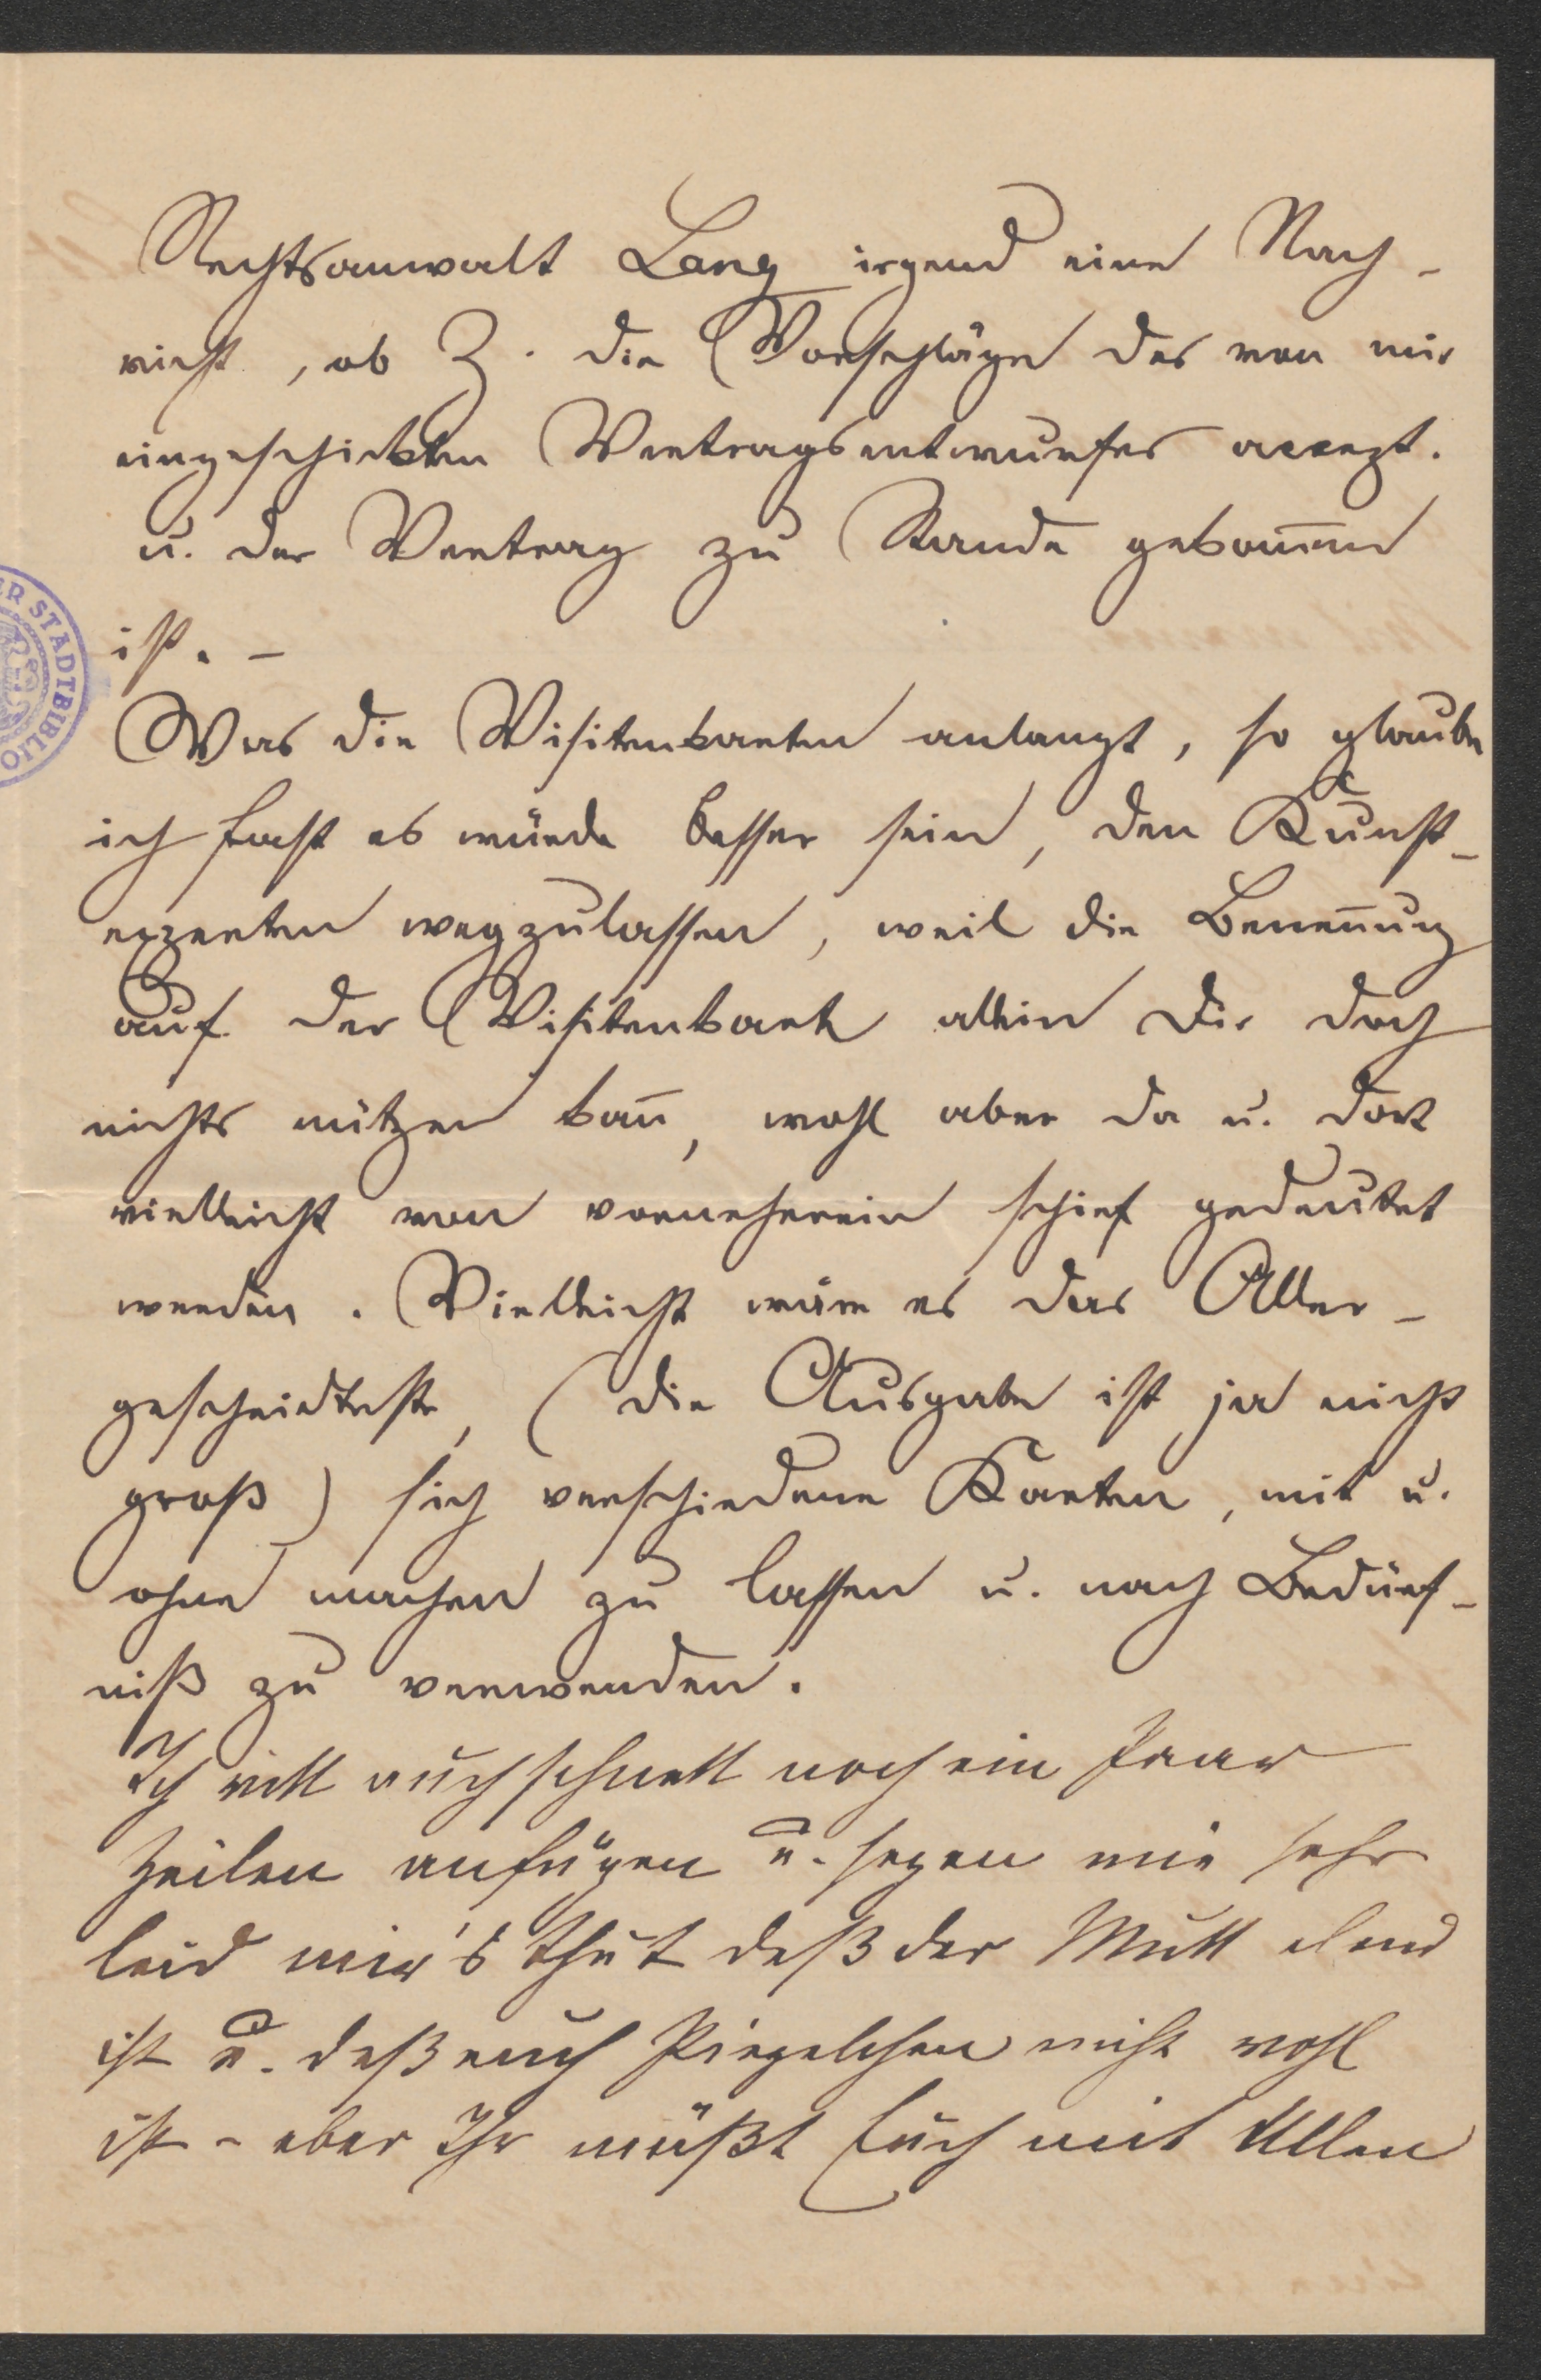 Rechtsanwalt Lang irgend eine Nach-
richt, ob Z. die Vorschläge des von mir
eingeschickten Vertragsentwurfes accept.
u. der Vertrag zu Stande gekom̄en
ist. –
Was die Visitenkarten anlangt, so glaube
ich fast es würde besser sein, den Kunst-
experten wegzulassen, weil die Benen̄ung
auf der Visitenkarte allein Dir doch
nichts nützen kan̄, wohl aber da u. dort
vielleicht von vorneherein schief gedeutet
werden. Vielleicht wäre es das Aller-
gescheidteste, (die Ausgabe ist ja nicht
groß) sich verschiedene Karten, mit u.
ohne machen zu lassen u. nach Bedürf-
niß zu verwenden.
Ich will auch schnell noch ein Paar
Zeilen anfügen u. sagen wie sehr
leid mir's thut daß der Mutt elend
ist u. daß auch nicht wohl
ist – aber Ihr müßt Euch mit Allen
ER STADTBIBLIO